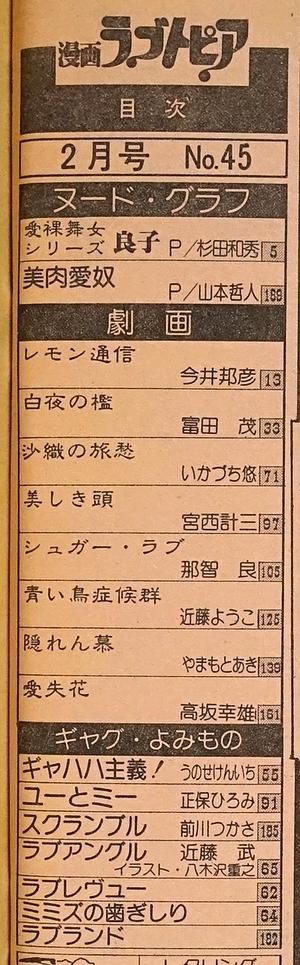 漫画ラブトピア
目次
2月号 No.45
ヌード・グラフ
愛裸舞女
シリーズ 良子 P/杉田和秀 5
美肉愛奴
P/山本哲人 189
劇画
レモン通信
今井邦彦 13
白夜の檻
富田 茂 33
沙織の旅愁
いかづち悠 71
美しき頭
宮西計三 97
シュガー・ラブ
那智 良 105
青い鳥症候群
近藤ようこ 125
隠れん慕
やまもとあき 139
愛失花
高坂幸雄 161
ギャグ・よみもの
ギャハハ主義! うのせけんいち 55
ユーとミー 正保ひろみ 91
スクランブル 前川つかさ 185
ラブアングル 近藤 武
イラスト・八木沢重之 65
ラブレヴュー 62
ミミズの歯ぎしり 64
ラブランド 182